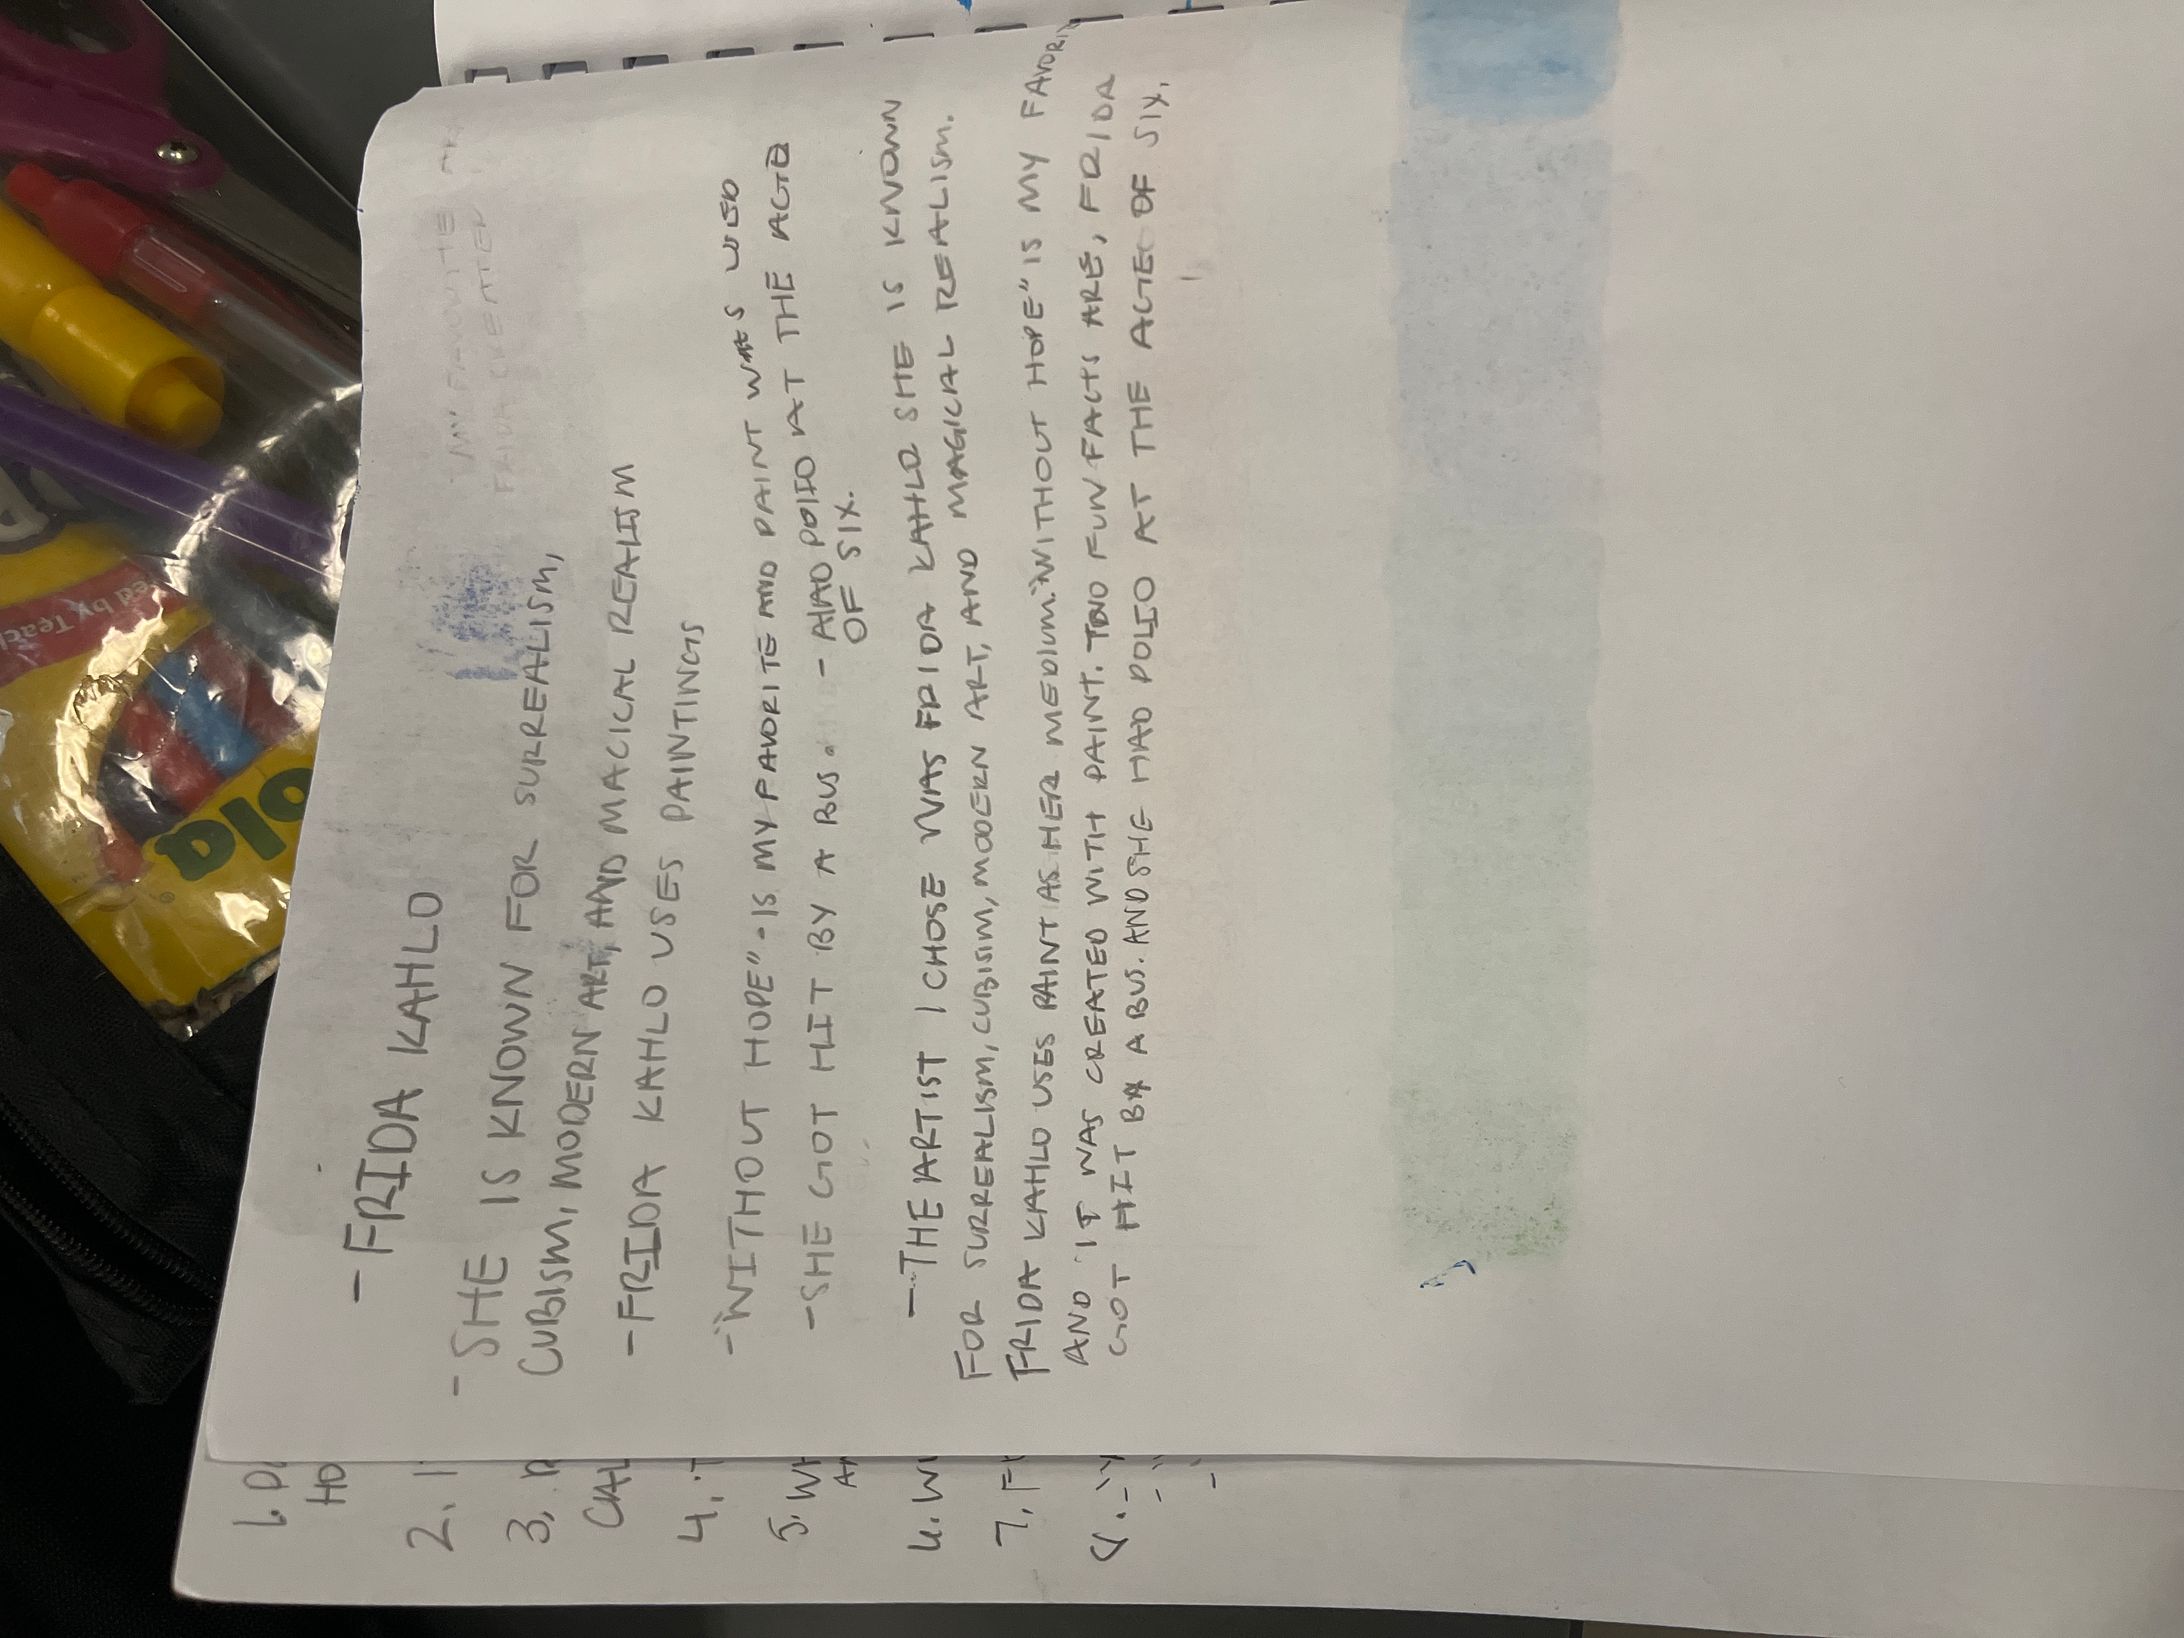 - FRIDA KAHLO
- SHE IS KNOWN FOR SURREALISM,
CUBISM, MODERN ART, AND MAGICAL REALISM
- FRIDA KAHLO USES PAINTINGS
- "WITHOUT HOPE" - IS MY FAVORITE AND PAINT WAS USED
- SHE GOT HIT BY A BUS. - HAD POLIO AT THE AGE
OF SIX.
- THE ARTIST I CHOSE WAS FRIDA KAHLO SHE IS KNOWN
FOR SURREALISM, CUBISIM, MODERN ART, AND MAGICIAL REALISM.
FRIDA KAHLO USES PAINT AS HER MEDIUM. "WITHOUT HOPE" IS MY FAVORI
AND IT WAS CREATED WITH PAINT. TWO FUN FACTS ARE, FRIDA
GOT HIT BY A BUS. AND SHE HAD POLIO AT THE AGE OF SIX.
1.
HO
2.
3.
CAL
4.
5. WH
6. WI
7.
ola